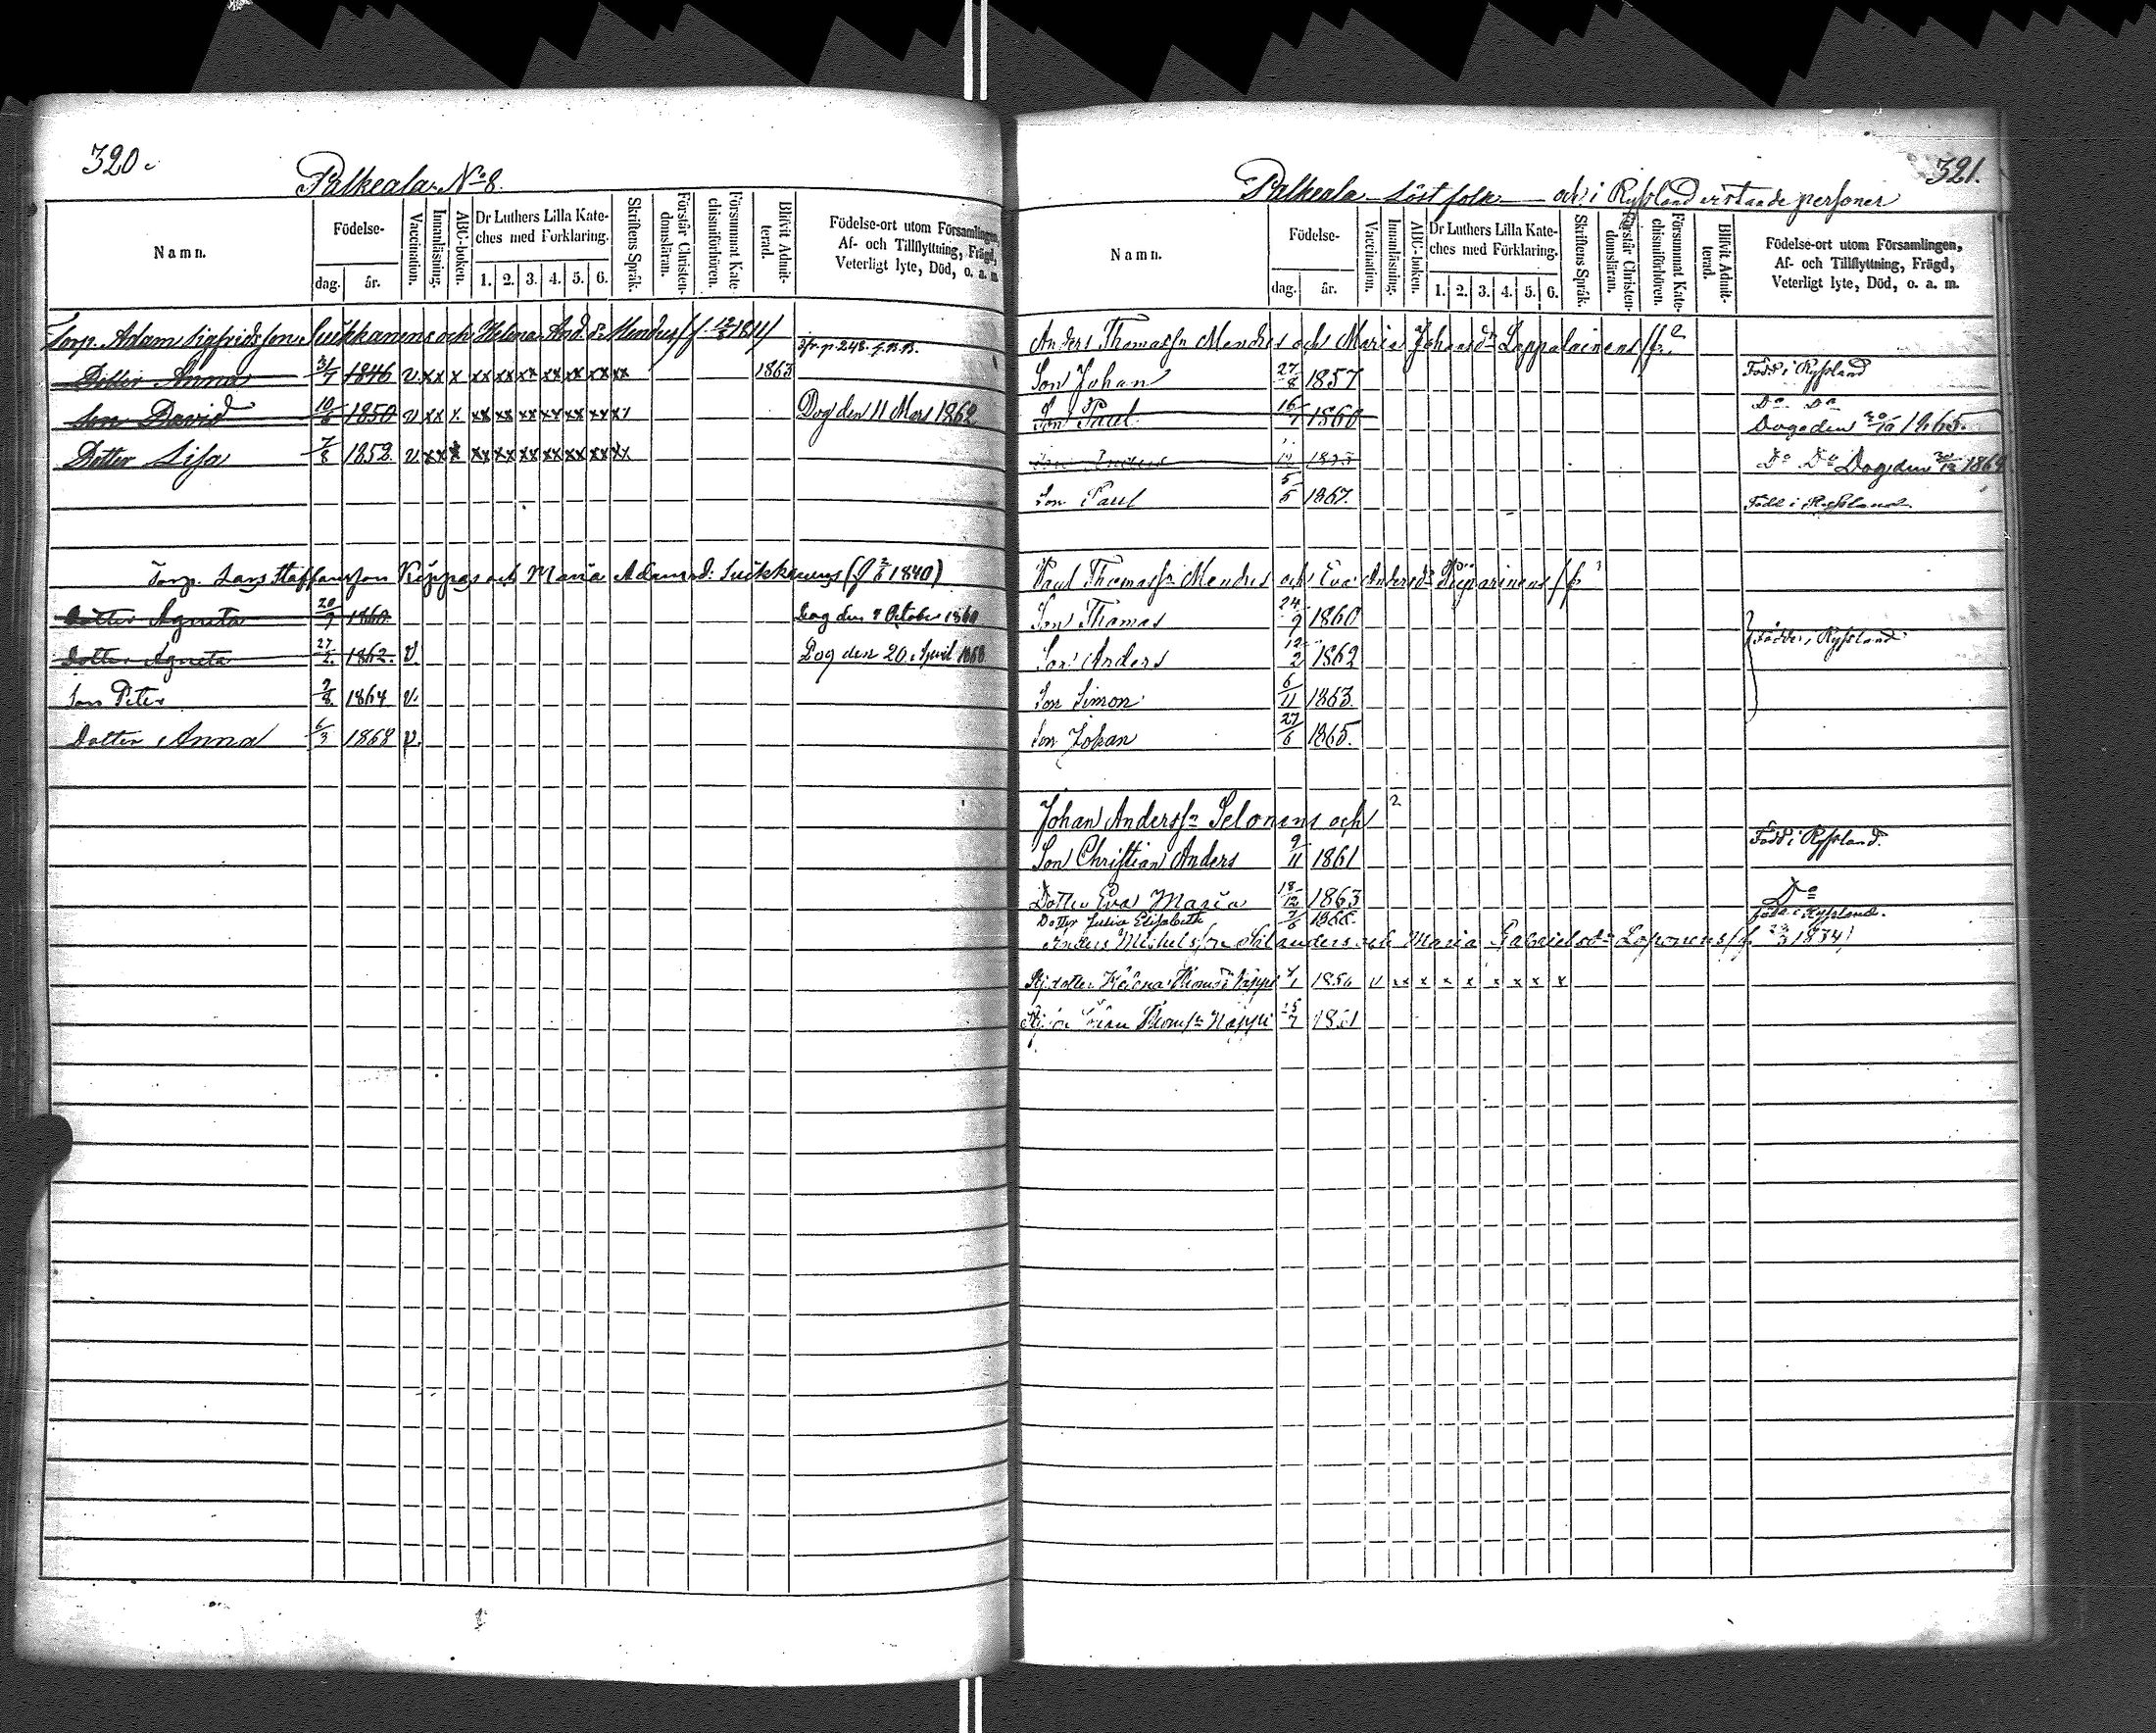 320.
Palkeala No 8.
Namn.
Födelse-
dag.
år.
Vaccination.
Innanläsning.
ABC-boken.
Dr Luthers Lilla Kate-
ches med Förklaring.
1. 2. 3. 4. 5. 6.
Skriftens Språk.
Förstår Christen-
domsläran.
Försummat Kate-
chismiförhören.
Blifvit Admit-
terad.
Födelse-ort utom Församlingen,
Af- och Tillflyttning, Frägd,
Veterligt lyte, Död, o. a. m.
Torp. Adam Sigfridsson Suikkanens och Helena And.dr Mendres
Dotter Anna 3/7 1846 v. xx x xx xx xx xx xx xx xx 1863
Son David 10/6 1850 v xx x xx xx xx xx xx xx xx Dog den 11 Mars 1862
Dotter Lisa 7/8 1852 v xx x xx xx xx xx xx xx xx
Torp. Lars Staffansson och Maria Adamsd: Suikkanens 1840)
Dotter Agneta 20/9 1860 Dog den October 1860
Dotter Agneta 27/2 1862. v Dog den 20 April 1868
Son Peter 2/8 1864 v.
Dotter Anna 6/3 1868 v.
321.
Palkeala Löst folk och i Ryssland vistande personer
Namn.
Födelse-
dag.
år.
Vaccination.
Innanläsning.
ABC-boken.
Dr Luthers Lilla Kate-
ches med Förklaring.
1. 2. 3. 4. 5. 6.
Skriftens Språk.
Förstår Christen-
domsläran.
Försummat Kate-
chismiförhören.
Blifvit Admit-
terad.
Födelse-ort utom Församlingen,
Af- och Tillflyttning, Frägd,
Veterligt lyte, Död, o. a. m.
Anders Thomass:n Mendres och Maria Johansdr Lappalainens (f. ?
Son Johan 27/8 1857 Född i Ryssland
Son Paul 16/7 1860 Do Do Dog den 20/10 1865.
Son Anders Do Do Dog den 1869
Son Paul 5/5 1867. Född i Ryssland.
Paul Thomass:n Mendres och Eva Andersdr
Son Thomas 24/9 1860 Födde i Ryssland
Son Anders 12/2 1862
Son Simon 6/11 1863.
Son Johan 27/6 1865.
Johan Anderss:n Selonens och ?
Son Christian Anders 9/11 1861 Född i Ryssland.
Dotter Eva Maria 18/12 1863 Do
Dotter Julia Elisabeth 7/6 född i Ryssland.
Anders Michelsson och Maria Gabrielsdr Loponens (f. 1834)